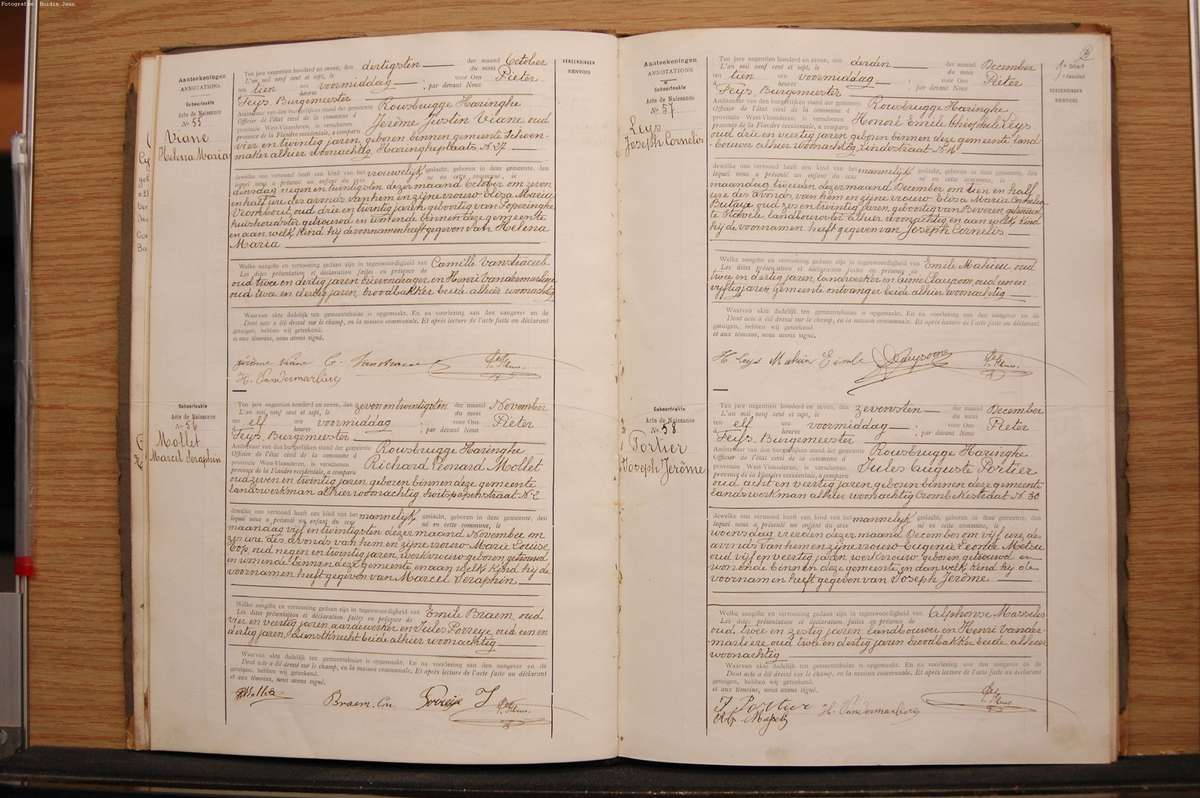 Fotografie: Buidin Jean
Aanteekeningen
ANNOTATIONS
Geboorteakte
Acte de Naissance
Nº 55
Viane
Helena Maria
Ten jare negentien honderd en zeven, den dertigsten der maand October
L'an mil neuf cent et sept, le du mois
ten tien ure voormiddag voor Ons Pieter
à heures ; par devant Nous
Feys Burgemeester
Ambtenaar van den burgerlijken stand der gemeente Rousbrugge Haringhe
Officier de l'état civil de la commune d
provincie West-Vlaanderen, is verschenen Jerôme Viane oud
province de la Flandre occidentale, a comparu
vier en twintig jaren, geboren binnen gemeente schoen-
maker alhier woonachtig, Haringheplaats N. 37
dewelke ons vertoond heeft een kind van het vrouwelijk geslacht, geboren in deze gemeente, den
lequel nous a présenté un enfant du sexe né en cette commune, le
dinsdag negen en twintigsten dezer maand October om zeven
en half ure des avonds van hem en zijne vrouw Maria
oud drie en twintig jaren, geboortig van Poperinghe
huishoudster getrouwd en wonende binnen deze gemeente
en aan welk kind hij de voornamen heeft gegeven van Helena
Maria
Welke aangifte en vertooning gedaan zijn in tegenwoordigheid van Camille
Les dites présentation et déclaration faites en présence de
oud twee en dertig jaren brievendrager en Henri
oud twee en dertig jaren, broodbakker beide alhier woonachtig
Waarvan akte dadelijk ten gemeentehuize is opgemaakt. En na voorlezing aan den aangever en de
Dont acte a été dressé sur le champ, en la maison communale. Et après lecture de l'acte faite au déclarant
getuigen, hebben wij geteekend.
et aux témoins, nous avons signé.
jérôme viane C.
H. Vandermarliere
VERZENDINGEN
RENVOIS
Geboorteakte
Acte de Naissance
Nº 56
Mollet
Marcel Seraphin
Ten jare negentien honderd en zeven, den zeven en twintigsten der maand November
L'an mil neuf cent et sept, le du mois
ten elf ure voormiddag voor Ons Pieter
à heures ; par devant Nous
Feys Burgemeester
Ambtenaar van den burgerlijken stand der gemeente Rousbrugge Haringhe
Officier de l'état civil de la commune d
provincie West-Vlaanderen, is verschenen Richard Leonard Mollet
province de la Flandre occidentale, a comparu
oud zeven en twintig jaren geboren binnen deze gemeente
landswerkman alhier woonachtig N. 2
dewelke ons vertoond heeft een kind van het mannelijk geslacht, geboren in deze gemeente, den
lequel nous a présenté un enfant du sexe né en cette commune, le
maandag vijf en twintigsten dezer maand November om
ure des avonds van hem en zijne vrouw Marie Louise
oud negen en twintig jaren, werkvrouw geboren getrouwd
en wonende binnen deze gemeente en aan welk kind hij de
voornamen heeft gegeven van Marcel Seraphin
Welke aangifte en vertooning gedaan zijn in tegenwoordigheid van Emile Braem oud
Les dites présentation et déclaration faites en présence de
vier en veertig jaren, aardewerker en Jules Porreye oud een en
dertig jaren, dienstknecht beide alhier woonachtig
Waarvan akte dadelijk ten gemeentehuize is opgemaakt. En na voorlezing aan den aangever en de
Dont acte a été dressé sur le champ, en la maison communale. Et après lecture de l'acte faite au déclarant
getuigen, hebben wij geteekend.
et aux témoins, nous avons signé.
Braem. Em
Aanteekeningen
ANNOTATIONS
Geboorteakte
Acte de Naissance
Nº 57
Leys
Joseph Cornelis
Ten jare negentien honderd en zeven, den derden der maand December
L'an mil neuf cent et sept, le du mois
ten tien ure voormiddag voor Ons Pieter
à heures ; par devant Nous
Feys Burgemeester
Ambtenaar van den burgerlijken stand der gemeente Rousbrugge Haringhe
Officier de l'état civil de la commune d
provincie West-Vlaanderen, is verschenen Honoré Emile Leys
province de la Flandre occidentale, a comparu
oud drie en veertig jaren geboren binnen deze gemeente land-
bouwer alhier woonachtig
dewelke ons vertoond heeft een kind van het mannelijk geslacht, geboren in deze gemeente, den
lequel nous a présenté un enfant du sexe né en cette commune, le
maandag tweeden dezer maand December om tien en half
ure des avonds, van hem en zijne vrouw Elisa Maria Cornelia
Butaye oud zes en twintig jaren, geboortig van Beveren getrouwd
te Stavele landbouwster alhier woonachtig en aan welk kind
hij de voornamen heeft gegeven van Joseph Cornelis
Welke aangifte en vertooning gedaan zijn in tegenwoordigheid van Emile Mahieu oud
Les dites présentation et déclaration faites en présence de
twee en dertig jaren, landwerker en oud een en
vijftig jaren, gemeente ontvanger beide alhier woonachtig
Waarvan akte dadelijk ten gemeentehuize is opgemaakt. En na voorlezing aan den aangever en de
Dont acte a été dressé sur le champ, en la maison communale. Et après lecture de l'acte faite au déclarant
getuigen, hebben wij geteekend.
et aux témoins, nous avons signé.
H Leys Mahieu Emile
VERZENDINGEN
RENVOIS
Geboorteakte
Acte de Naissance
Nº 58
Portier
Joseph Jerôme
Ten jare negentien honderd en zeven, den zevensten der maand December
L'an mil neuf cent et sept, le du mois
ten elf ure voormiddag voor Ons Pieter
à heures ; par devant Nous
Feys Burgemeester
Ambtenaar van den burgerlijken stand der gemeente Rousbrugge Haringhe
Officier de l'état civil de la commune d
provincie West-Vlaanderen, is verschenen Jules Auguste Portier
province de la Flandre occidentale, a comparu
oud acht en veertig jaren geboren binnen deze gemeente
landswerkman alhier woonachtig Crombekestraat N. 30
dewelke ons vertoond heeft een kind van het mannelijk geslacht, geboren in deze gemeente, den
lequel nous a présenté un enfant du sexe né en cette commune, le
woensdag vierden dezer maand December om vijf ure des
avonds van hem en zijne vrouw Eugenia Leonia
oud vijf en veertig jaren, werkvrouw geboren getrouwd en
wonende binnen deze gemeente en aan welk kind hij de
voornamen heeft gegeven van Joseph Jerôme
Welke aangifte en vertooning gedaan zijn in tegenwoordigheid van Alphonse
Les dites présentation et déclaration faites en présence de
oud twee en zestig jaren landbouwer en Henri Vander-
marliere oud twee en dertig jaren broodbakker beide alhier
woonachtig
Waarvan akte dadelijk ten gemeentehuize is opgemaakt. En na voorlezing aan den aangever en de
Dont acte a été dressé sur le champ, en la maison communale. Et après lecture de l'acte faite au déclarant
getuigen, hebben wij geteekend.
et aux témoins, nous avons signé.
J Portier H. Vandermarliere